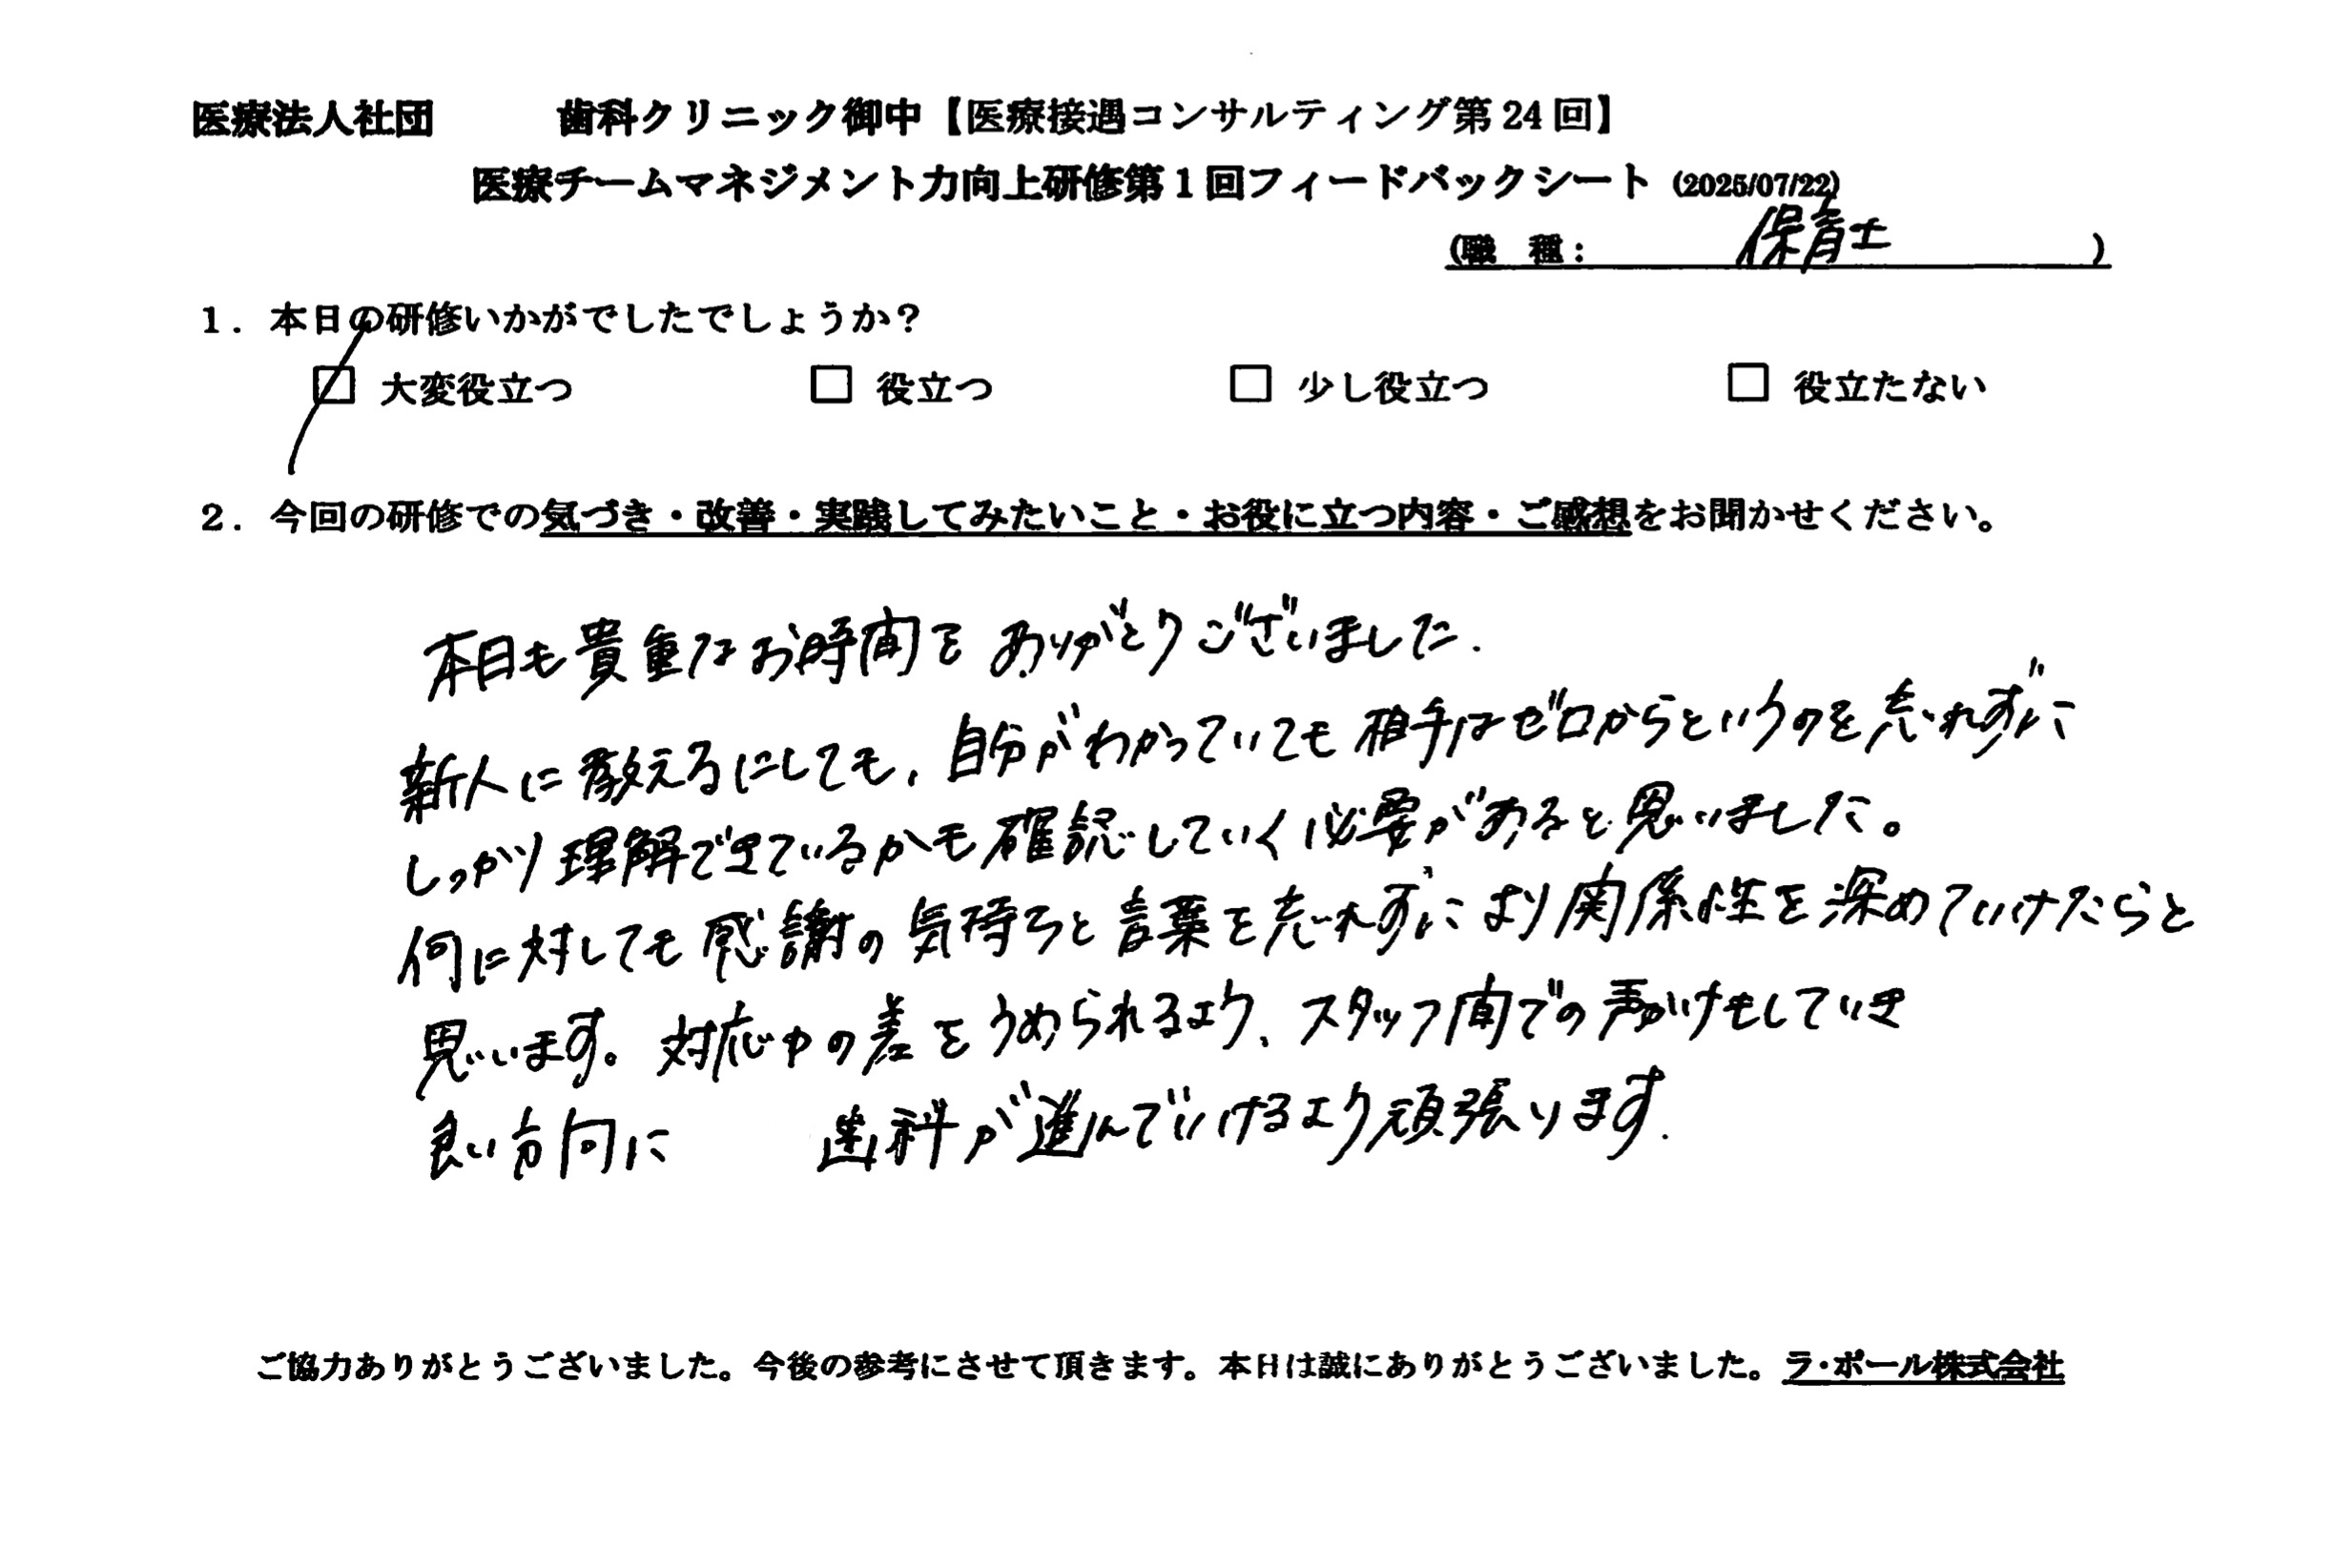 医療法人社団　　　歯科クリニック御中【医療接遇コンサルティング第24回】
医療チームマネジメント力向上研修第1回フィードバックシート (2025/07/22)
(職　種：　保育士　)
1．本日の研修いかがでしたでしょうか？
☑ 大変役立つ　□ 役立つ　□ 少し役立つ　□ 役立たない
2．今回の研修での気づき・改善・実践してみたいこと・お役に立つ内容・ご感想をお聞かせください。
本日も貴重なお時間をありがとうございました.
新人に教えるにしても、自分がわかっていても相手はゼロからというのを忘れずに
しっかり理解できているかも確認していく必要があると思いました。
何に対しても感謝の気持ちと言葉を忘れずに より関係性を深めていけたらと
思います。対応中の差をうめられるよう、スタッフ間での声がけもしていき
良い方向に　　　歯科が進んでいけるよう頑張ります.
ご協力ありがとうございました。今後の参考にさせて頂きます。本日は誠にありがとうございました。ラ・ポール株式会社